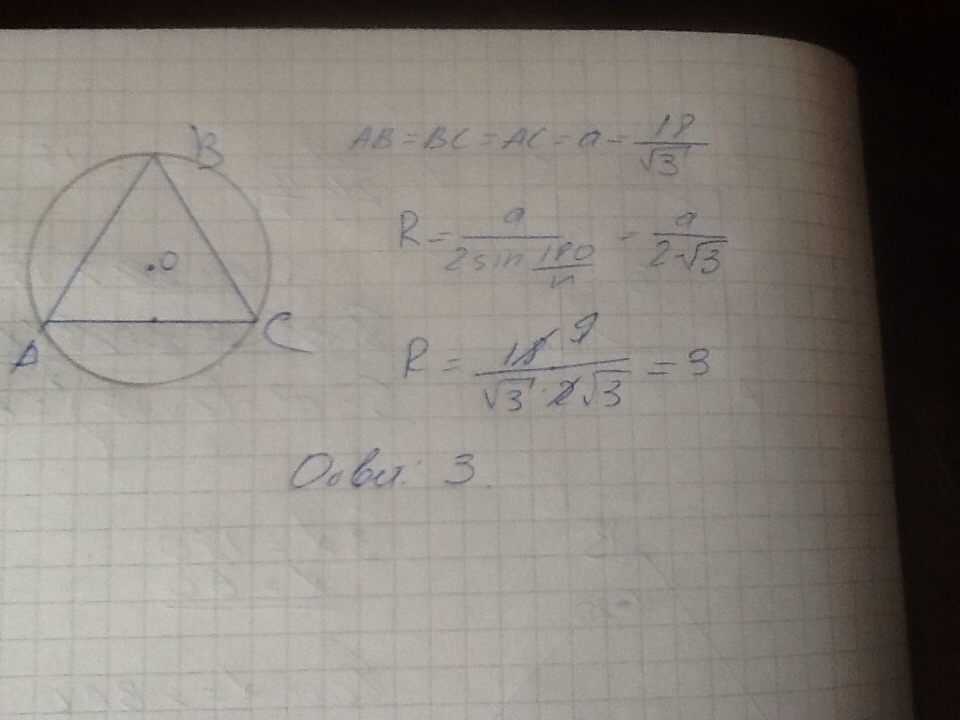 B
AB = BC = AC = a = 18/√3
R = a/(2 sin 180/n) = a/(2·√3)
.O
A
C
R = 18 9/(√3 · 2√3) = 3
Ответ: 3.